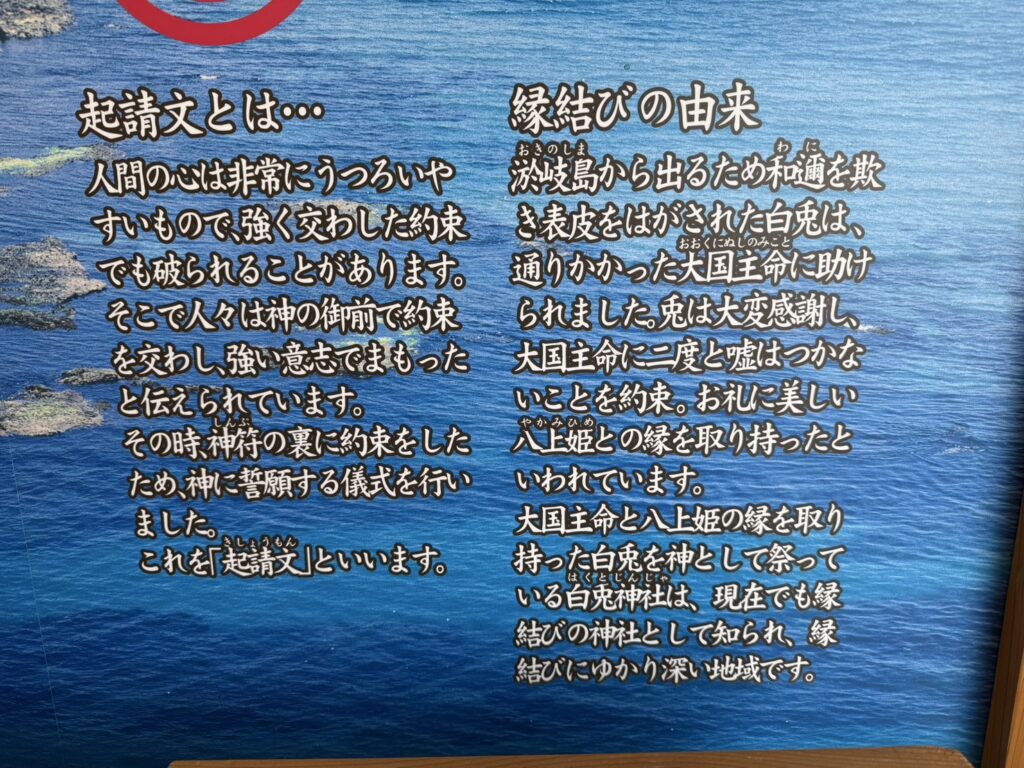 起請文とは…
人間の心は非常にうつろいや
すいもので、強く交わした約束
でも破られることがあります。
そこで人々は神の御前で約束
を交わし、強い意志でまもった
と伝えられています。
しんぷ
その時、神符の裏に約束をした
ため、神に誓願する儀式を行い
ました。
きしょうもん
これを「起請文」といいます。
縁結びの由来
おきのしま わに
淤岐島から出るため和邇を欺
き表皮をはがされた白兎は、
おおくにぬしのみこと
通りかかった大国主命に助け
られました。兎は大変感謝し、
大国主命に二度と嘘はつかな
いことを約束。お礼に美しい
やかみひめ
八上姫との縁を取り持ったと
いわれています。
大国主命と八上姫の縁を取り
持った白兎を神として祭って
はくとじんじゃ
いる白兎神社は、現在でも縁
結びの神社として知られ、縁
結びにゆかり深い地域です。